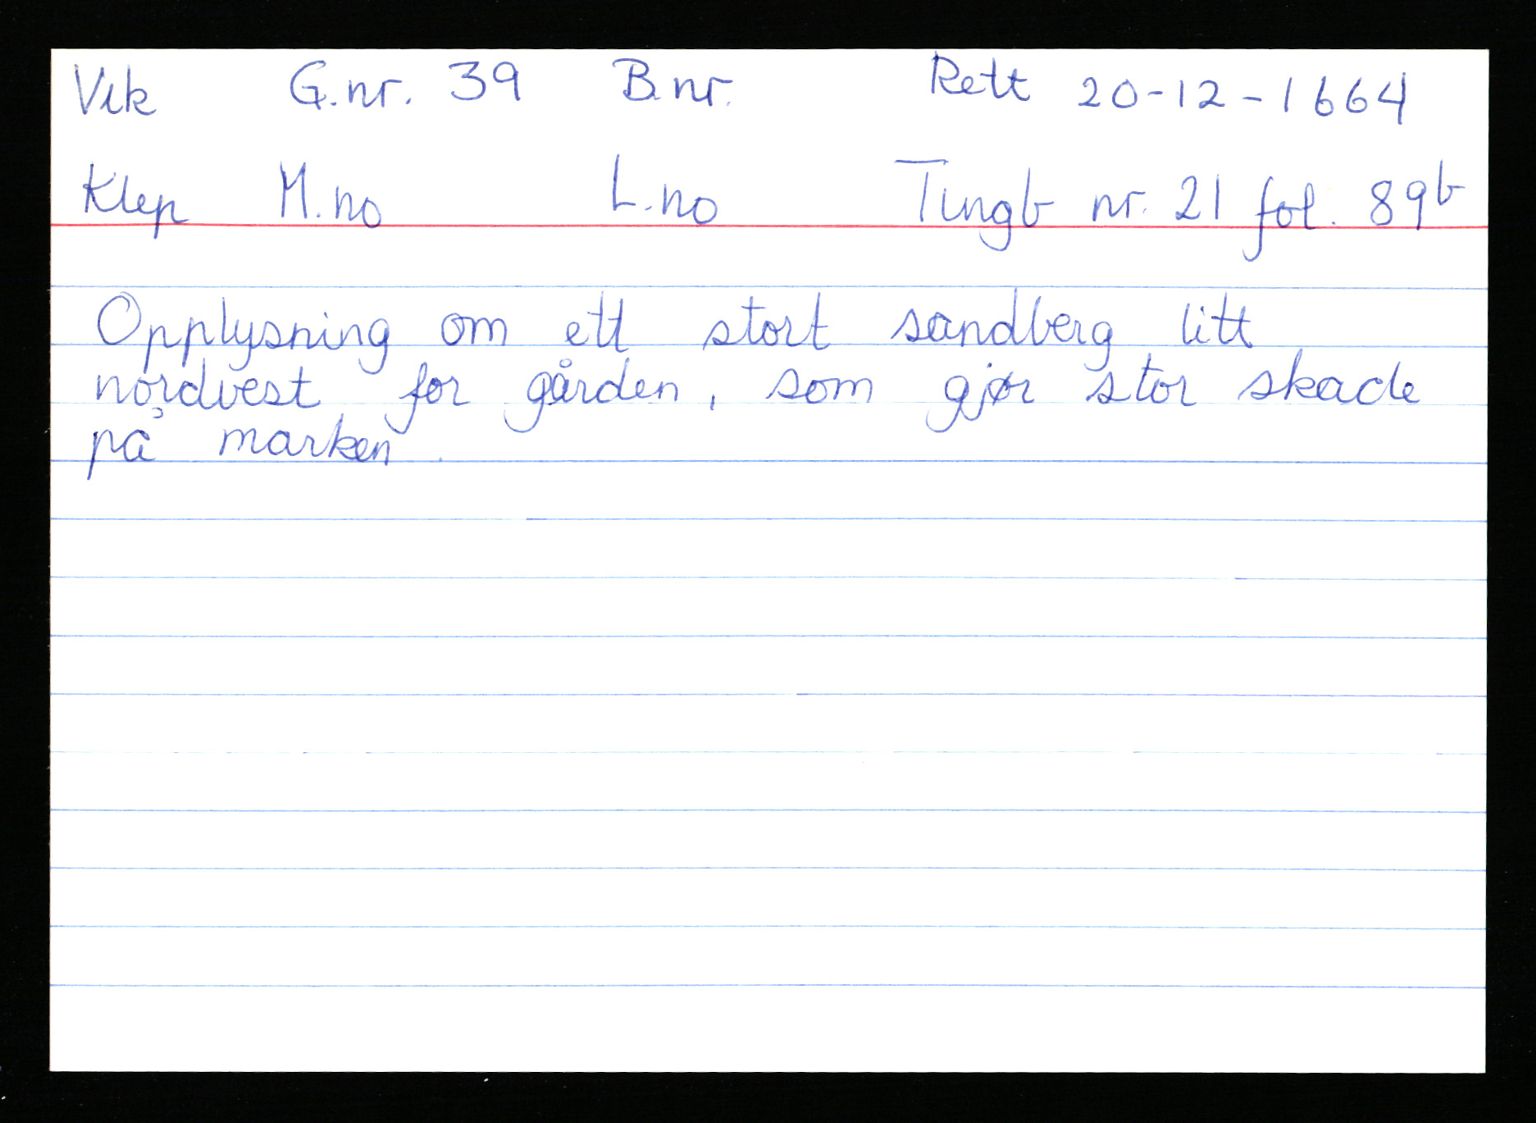 Vik G.nr. 39 B.nr. Rett 20-12-1664
Klep M.no L.no Tingb nr. 21 fol. 89b
Opplysning om ett stort sandberg litt
nordvest for gården, som gjør stor skade
på marken.